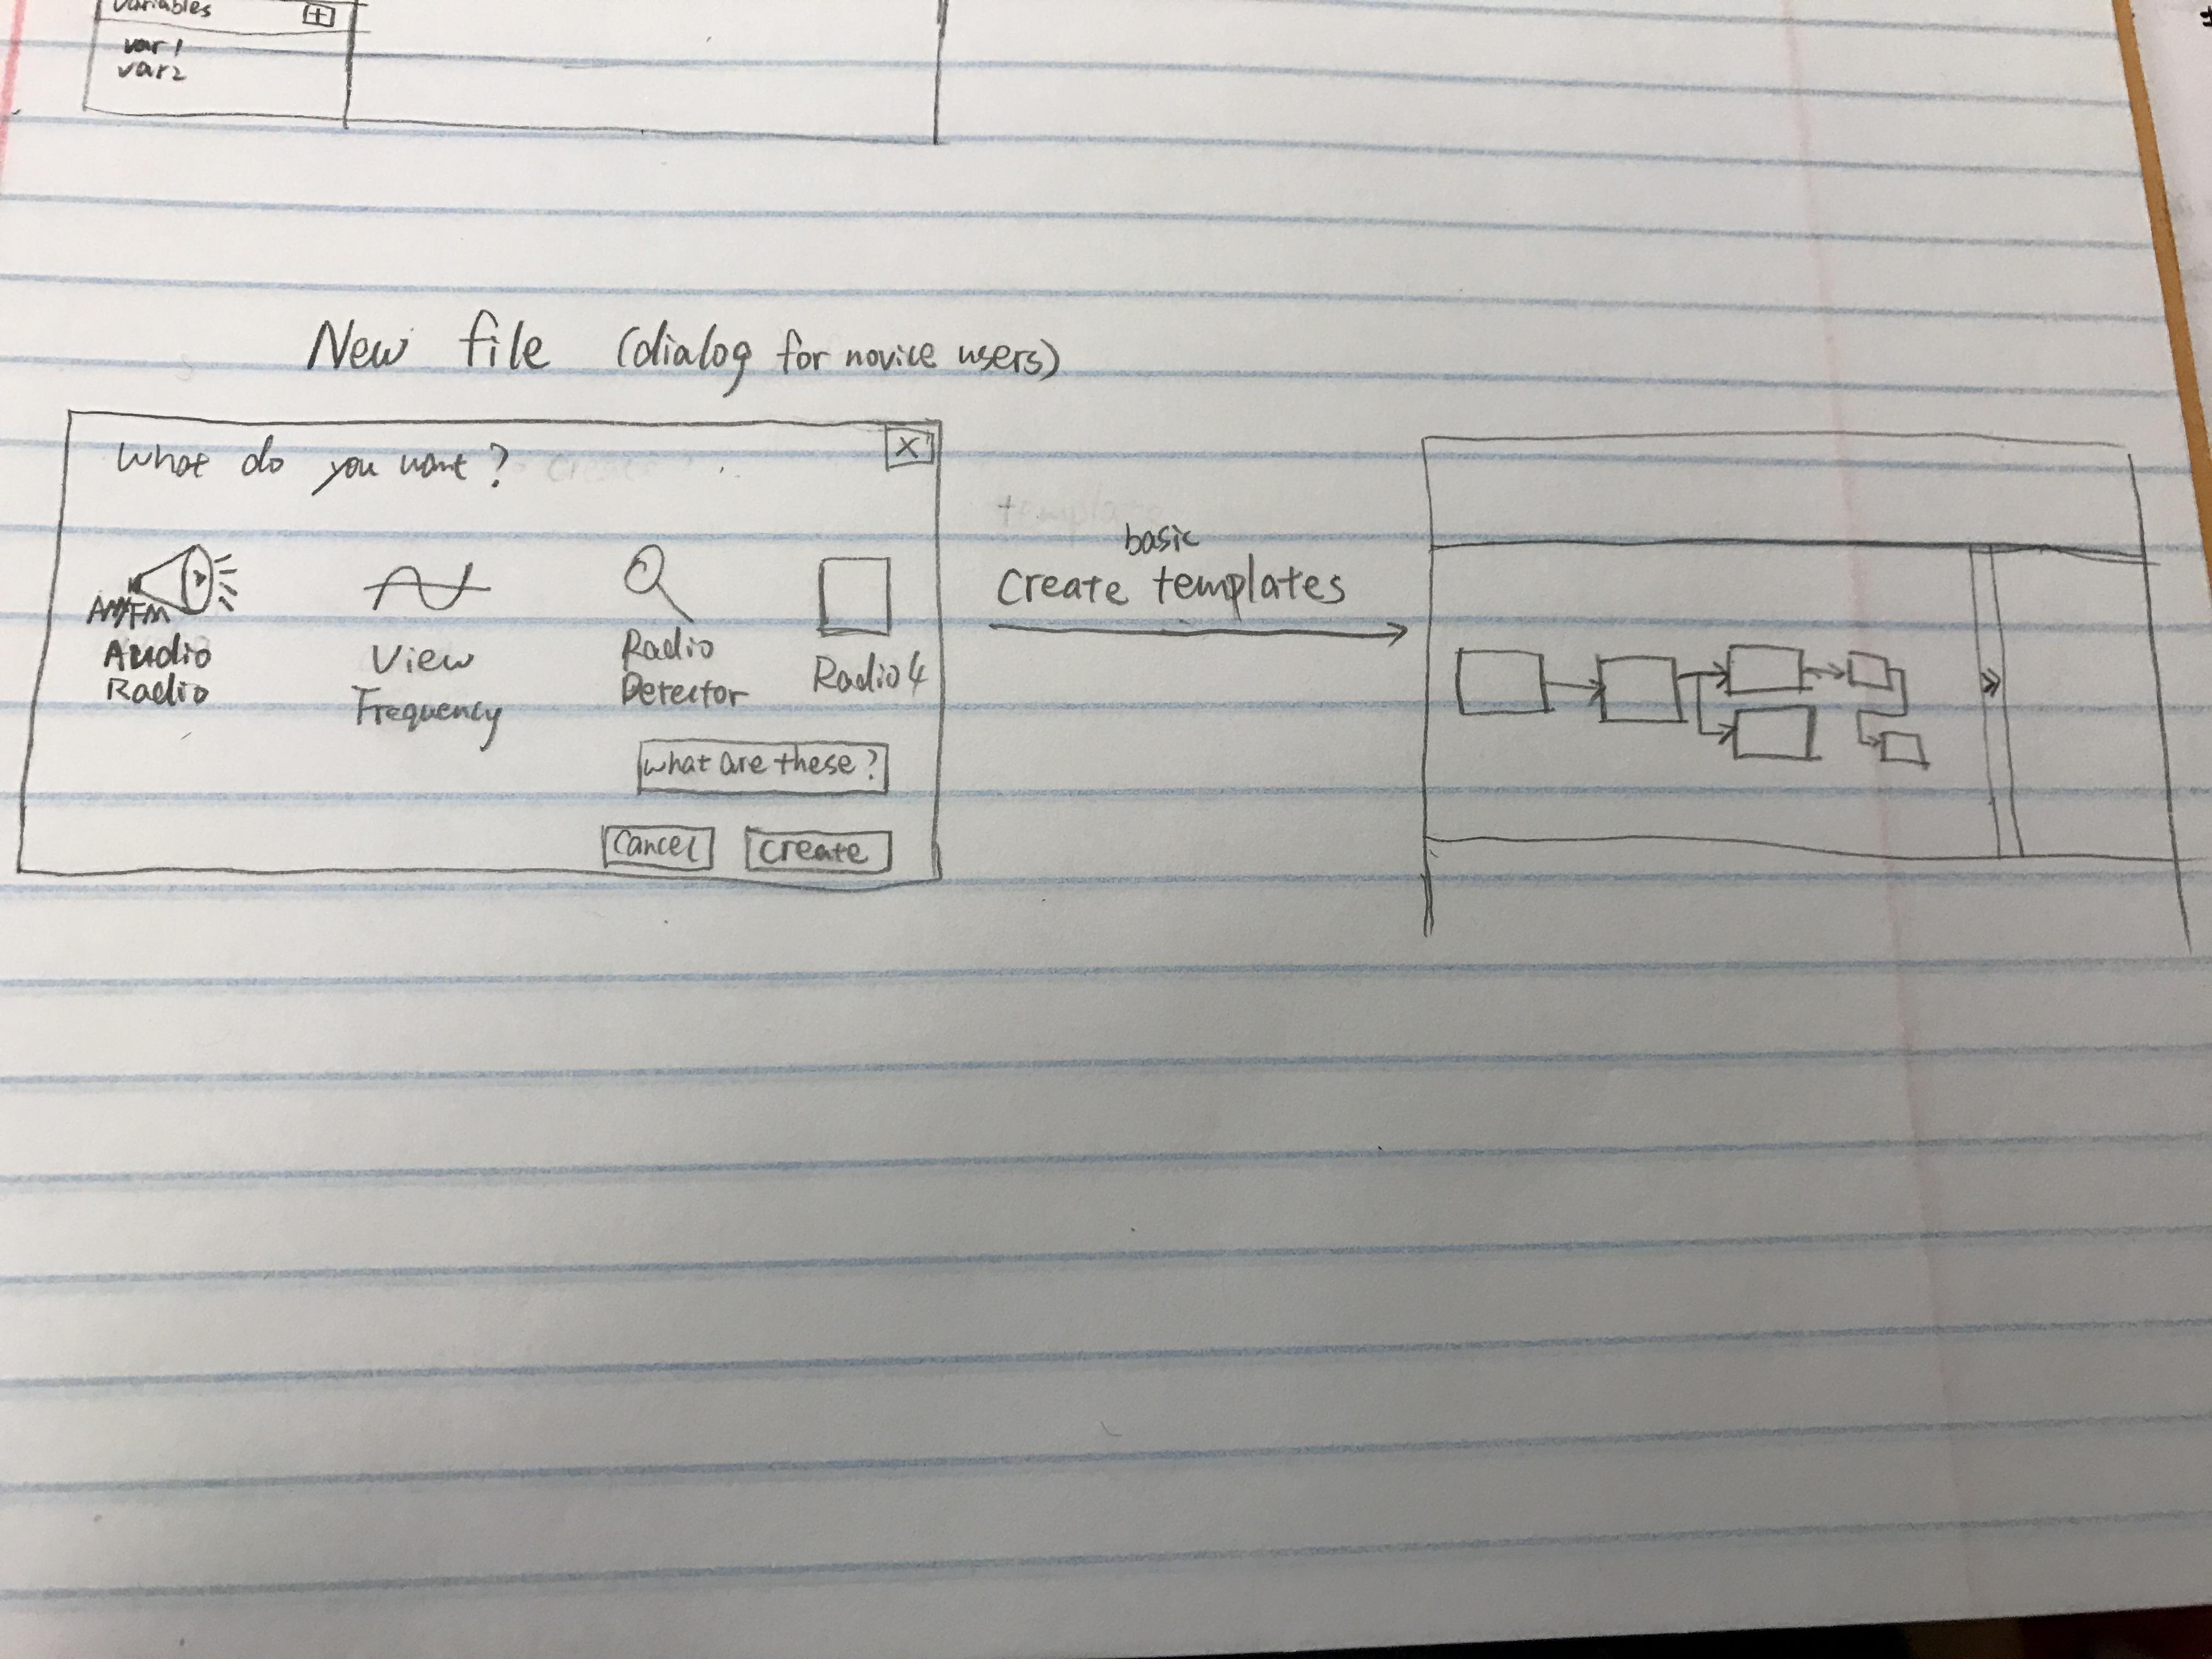 Variables +
var1
var2
New file (dialog for novice users)
What do you want?
X
AM/FM
Audio
Radio
View
Frequency
Radio
Detector
Radio4
What are these?
Cancel
Create
basic
Create templates